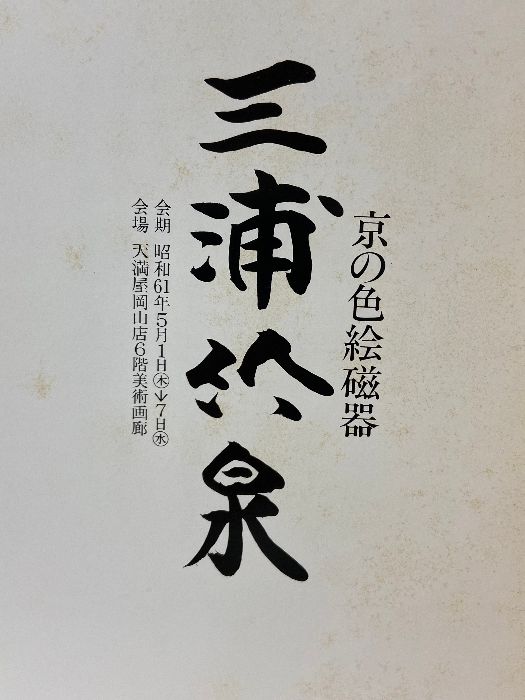 京の色絵磁器
三浦竹泉
会期 昭和61年5月1日㊍→7日㊌
会場 天満屋岡山店6階美術画廊